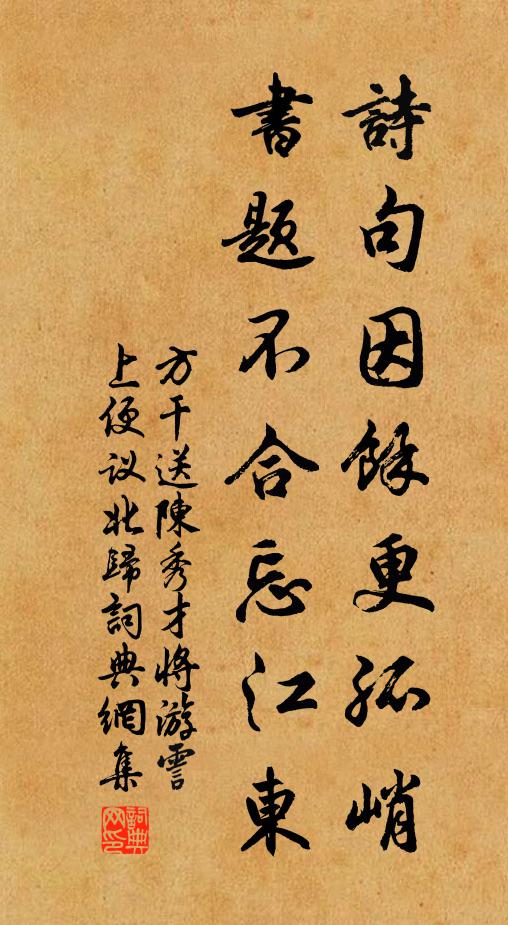 詩句因餘更孤峭
書題不合忘江東
方干送陳秀才將游霅
上便议北歸詞典網集
詞典
网印